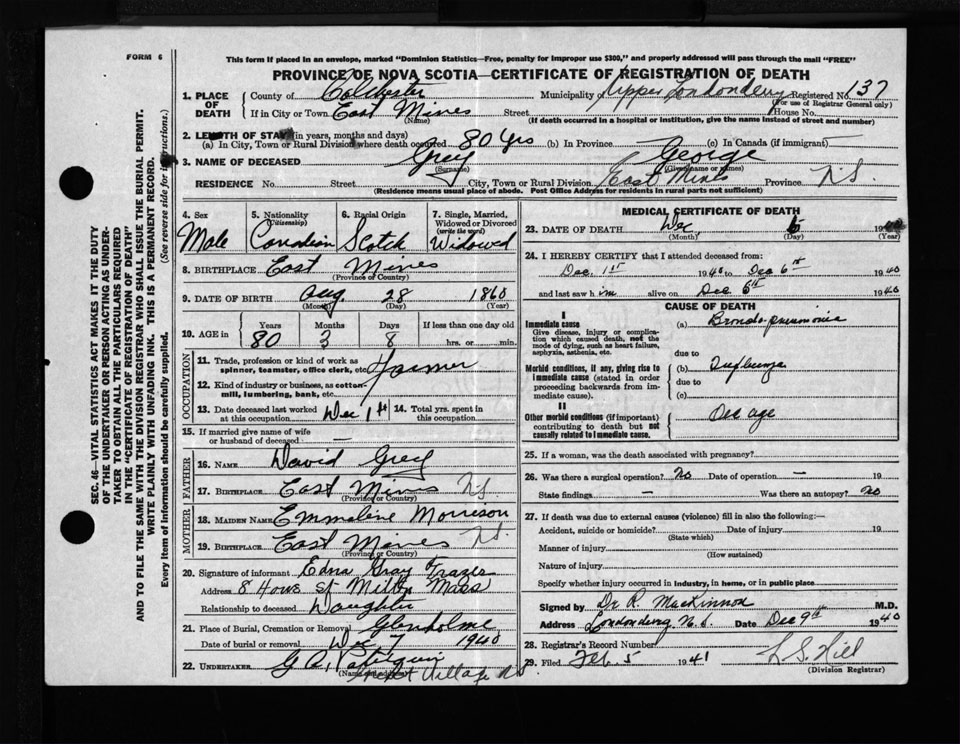 FORM 6
This form if placed in an envelope, marked "Dominion Statistics—Free, penalty for improper use $300," and properly addressed will pass through the mail "FREE"
PROVINCE OF NOVA SCOTIA—CERTIFICATE OF REGISTRATION OF DEATH
SEC. 46—VITAL STATISTICS ACT MAKES IT THE DUTY
OF THE UNDERTAKER OR PERSON ACTING AS UNDER-
TAKER TO OBTAIN ALL THE PARTICULARS REQUIRED
IN THE "CERTIFICATE OF REGISTRATION OF DEATH"
AND TO FILE THE SAME WITH THE DIVISION REGISTRAR WHO SHALL ISSUE THE BURIAL PERMIT.
WRITE PLAINLY WITH UNFADING INK. THIS IS A PERMANENT RECORD.
Every item of information should be carefully supplied. (See reverse side for instructions.)
1. PLACE OF DEATH County of Colchester Municipality of Upper Londonderry Registered No. 137
(For use of Registrar General only)
If in City or Town East Mines Street House No.
(Name) (If death occurred in a hospital or institution, give the name instead of street and number)
2. LENGTH OF STAY (in years, months and days)
(a) In City, Town or Rural Division where death occurred 80 Yrs (b) In Province (c) In Canada (if immigrant)
3. NAME OF DECEASED Grey George
(Surname) (Given name or names)
RESIDENCE No. Street City, Town or Rural Division East Mines Province N.S.
(Residence means usual place of abode. Post Office Address for residents in rural parts not sufficient)
4. Sex Male
5. Nationality (Citizenship) Canadian
6. Racial Origin Scotch
7. Single, Married, Widowed or Divorced (write the word) Widowed
8. BIRTHPLACE East Mines
(Province or Country)
9. DATE OF BIRTH Aug. 28 1860
(Month) (Day) (Year)
10. AGE in Years 80 Months 3 Days 8 If less than one day old
hrs. or min.
OCCUPATION
11. Trade, profession or kind of work as
spinner, teamster, office clerk, etc. Farmer
12. Kind of industry or business, as cotton-
mill, lumbering, bank, etc.
13. Date deceased last worked at this occupation Dec 1st 14. Total yrs. spent in this occupation
15. If married give name of wife
or husband of deceased —
FATHER
16. NAME David Grey
17. BIRTHPLACE East Mines N.S.
(Province or Country)
MOTHER
18. MAIDEN NAME Emmeline Morrison
19. BIRTHPLACE East Mines N.S.
(Province or Country)
20. Signature of informant Edna Gray
Address 8 Howe St Mass
Relationship to deceased Daughter
21. Place of Burial, Cremation or Removal Glenholme
Date of burial or removal Dec 7 1940
22. UNDERTAKER G A
(Name and address) Village NS
MEDICAL CERTIFICATE OF DEATH
23. DATE OF DEATH Dec. 6 19
(Month) (Day) (Year)
24. I HEREBY CERTIFY that I attended deceased from:
Dec. 1st 1940 to Dec 6th 1940
and last saw him alive on Dec 6th 1940
CAUSE OF DEATH
I
Immediate cause
Give disease, injury or complica-
tion which caused death, not the
mode of dying, such as heart failure,
asphyxia, asthenia, etc.
(a) Broncho-pneumonia
due to
Morbid conditions, if any, giving rise to
immediate cause (stated in order
proceeding backwards from im-
mediate cause).
(b) Influenza
due to
(c)
II
Other morbid conditions (if important)
contributing to death but not
causally related to immediate cause.
Old age
25. If a woman, was the death associated with pregnancy?
26. Was there a surgical operation? No Date of operation — 19
State findings — Was there an autopsy? No
27. If death was due to external causes (violence) fill in also the following:—
Accident, suicide or homicide? Date of injury 19
(State which)
Manner of injury
(How sustained)
Nature of injury
Specify whether injury occurred in industry, in home, or in public place
Signed by Dr R. MacKinnon M.D.
Address Londonderry N.S. Date Dec 9th 1940
28. Registrar's Record Number
29. Filed Feb. 5 1941 L S Hill
(Division Registrar)